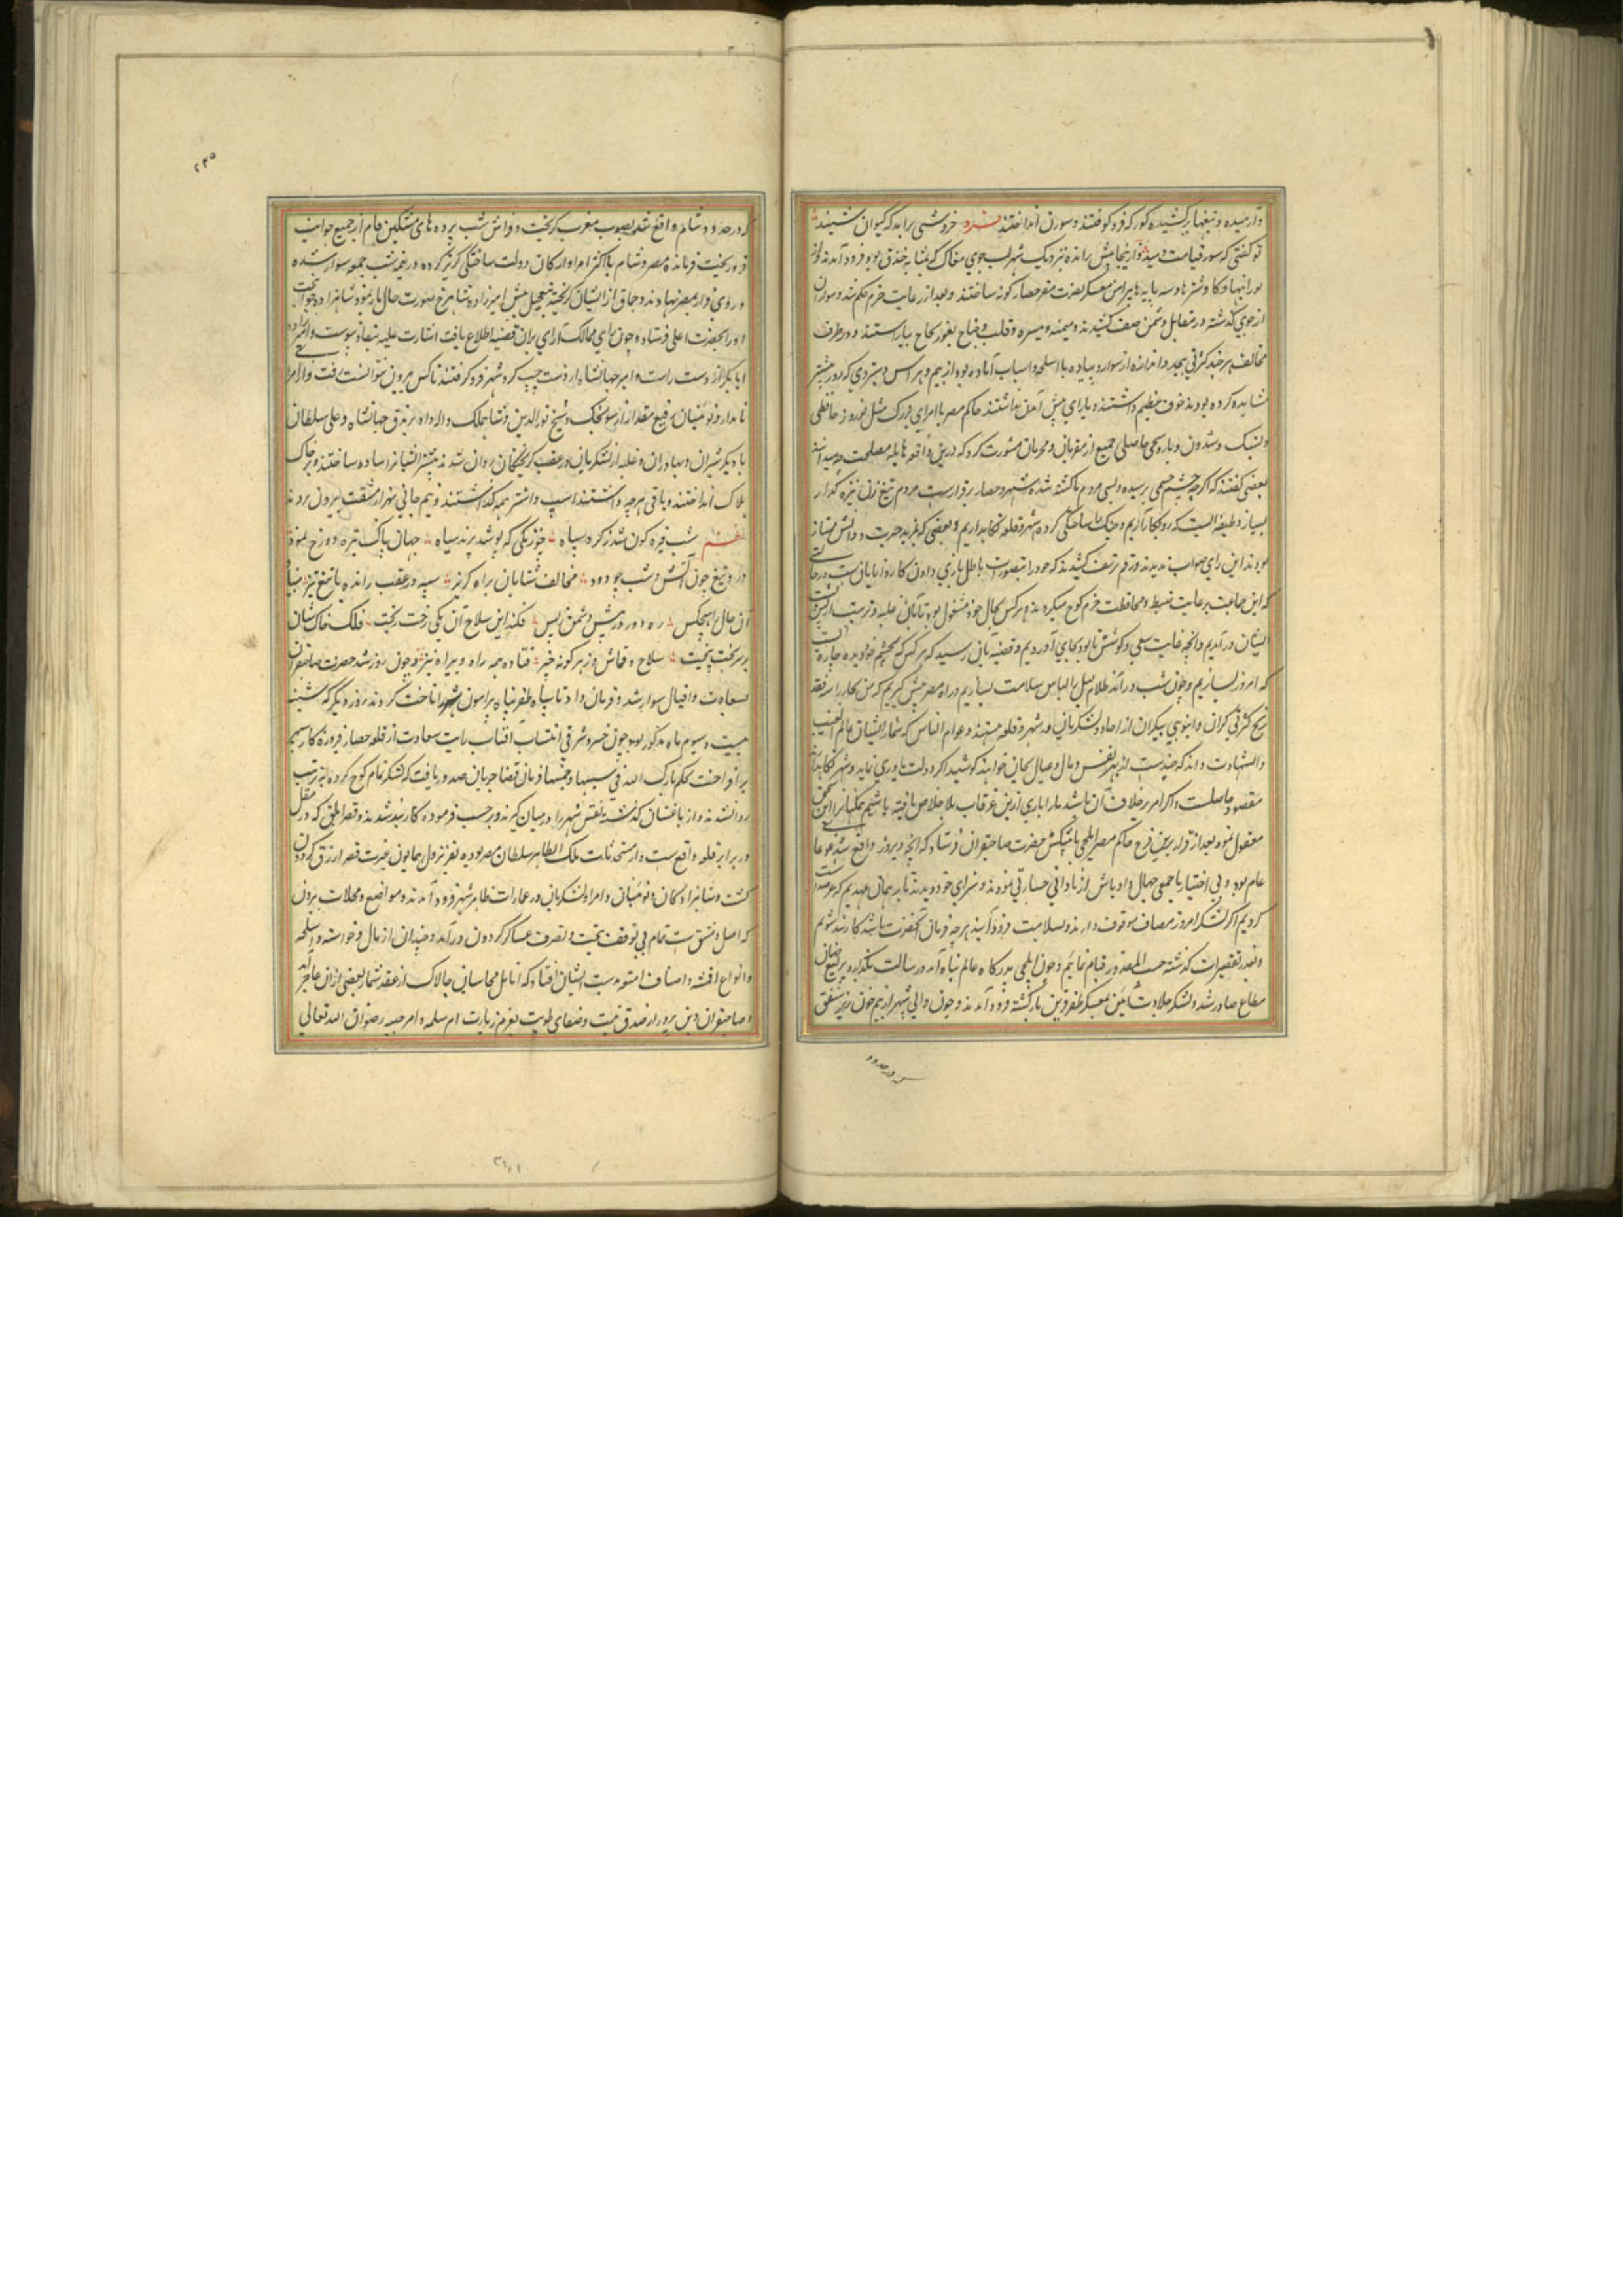 وآرمیده و تیغها برکشیده کورکه فرو کوفتند و سورن انداختند فرد خروشی برآمد که کیوان شنید
تو گفتی که سور قیامت دمید و از آنجا پیش رانده نزدیک شهر لب جوی مغاک که بمثابه خندق بود فرود آمدند و از
تورانها و کاو سرها و سه پایه ها پیرامن معسکر نصرت مقر حصار گونه ساختند و بعد از رعایت حزم حکم شد و سواران
از جوی گذشته در مقابل دشمن صف کشیدند و میمنه و میسره و قلب و جناح بیاراستند و در طرف
مخالف هر چند کثرتی بیحد و اندازه از سوار و پیاده با اسلحه و اسباب آماده بود از بیم و هراس دستبردی که روز پیشتر
مشاهده کرده بودند خوف عظیم داشتند و یارای پیش آمدن نداشتند حاکم مصر با امرای بزرک مثل نوروز حافظی
و یشبک و شدون و باروحی حاصلی جمیع از مقربان و محرمان مشورت کرد که درین واقعه هایله مصلحت چه میدانند
بعضی گفتند که اگرچه چشم زخمی رسیده و بسی مردم ما کشته شده شهر و حصار برقرارست مردم تیغ زن نیزه گذار
بسیار وظیفه آنست که رو بکار آریم و جنک را ساختگی کرده شهر و قلعه نگاه داریم و بعضی که بمزید حیرت و دانش ممتاز
بودند این رای صواب ندیدند و رقم تزییف کشیدند که خود را بتصورات باطل بازی دادن کار دانایان نیست در حالتی
که این جماعت برعایت ضبط و محافظت حزم کوچ میکردند و هر کس بحال خود مشغول بود تا آنان غلبه و ترتیب از پس
ایشان در آمدیم و آنچه غایت سعی و کوشش ما بود بجای آوردیم و قضیه بآن رسید که هر کس بچشم خود دیده چاره آنست
که امروز بسازیم و چون شب در آمد ظلام لیل را لباس سلامت بسازیم و راه مصر پیش گیریم
والشهادت داند که چندست از بهر نفس و مال و عیال بجان خواهند کوشید اگر دولت یاوری نماید و شهر نگاهدارند
مقصود حاصلست و اگر امر بر خلاف آن باشد ما را باری ازین غرقاب بلا خلاص یافته باشیم همگنان را این سخن
معقول نمود بعد از قرار برین فرح حاکم مصر ایلچی با پیشکش بحضرت صاحبقران فرستاد که آنچه دیروز واقع شد غوغا
عام بود و بی اختیار ما جمعی جهال و اوباش از نادانی جسارتی نمودند و سزای خود دیدند ما بر همان عهدیم که عرضه داشت
کردیم اگر لشکر امروز مصاف موقوف دارند و بسلامت فرود آیند هرچه فرمان آنحضرت باشد کاربند شویم
و بعذر تقصیرات گذشته حسب المقدور قیام نماییم و چون ایلچی بدرگاه عالم پناه آمد و رسالت بگذارد یرلیغ
مطاع صادر شد و لشکر جلادت آیین بمعسکر ظفر قرین بازگشته فرود آمدند و چون والی شهر از بیم خون ریز شفق
که در حدود
۲۳۵
که در حدود شام واقع شد بصوب مغرب گریخت و فراش شب پرده های مشکین فام از جمیع جوانب
فرو ریخت فرمانده مصر و شام با اکثر امرا و ارکان دولت ساختگی گریز کرده در نیمه شب جمعه سوار شده
و روی فرار بمصر نهادند و جاق از ایشان گریخته بتعجیل پیش امیرزاده شاهرخ صورت حال باز نمود شاهزاده جوانبخت
او را بحضرت اعلی فرستاد و چون رای ممالک آرای بران قضیه اطلاع یافت اشارت علیه بنفاذ پیوست و امیرزاده
ابابکر از دست راست و امیر جهانشاه از دست چپ گرد شهر فرو گرفتند تا کس بیرون نتوانست رفت و از امرای
نامدار و نویینان رفیع مقدار از سونجک و شیخ نورالدین و شاهملک و الله داد و برندق جهانشاه و علی سلطان
با دیگر شیران و بهادران و غلبه از لشکریان در عقب گریختگان روان شدند بیشتر ایشانرا پیاده ساختند و بر خاک
هلاک انداختند و باقی هرچه داشتند اسپ و اشتر همه گذاشتند و نیم جانی بهزار مشقت بیرون بردند
نظم شب قیره گون شد ز گرد سپاه چو زنگی که پوشد پرند سیاه جهان پاک تیره چو دوزخ نمود
در و تیغ چون آتش و شب چو دود مخالف شتابان براه گریز سپه در عقب رانده با تیغ تیز مباد
آن حال هیچکس ره دور در پیش و دشمن ز پس فکند این سلاح آن یکی رخت ریخت فلک خاک شان
بر سر بخت بیخت سلاح و قماش و ز هر گونه چیز فتاده همه راه و بیراه نیز و چون روز شد حضرت صاحبقران
بسعادت و اقبال سوار شد و فرمان داد تا سپاه ظفر پناه پیرامون شهر را تاخت کردند روز دیگر که شنبه
بیست و سیوم ماه مذکور بود چون خسرو شرقی انتساب آفتاب رایت سعادت از قلعه حصار فیروزه کار سپهر
برافراخت بحکم بارک الله فی سبتها و خمیسها فرمان قضا جریان صدور یافت که لشکر تمام کوچ کرده به ترتیب
روانه شدند و از باغستان گذشته نفس شهر را در میان گیرند و بر حسب فرموده کاربند شدند و قصر ابلق که در مقابل
در برابر قلعه واقع است و از مستحدثات ملک الظاهر سلطان مصر بوده بعز نزول همایون غیرت قصر ازرق گردون
گشت و شاهزادگان و نویینان و امرا و لشکریان در عمارات ظاهر شهر فرود آمدند و مواضع و محلات بیرون
که اصل دمشق است تمام بی توقف بحیث تصرف عساکر گردون در آمد و چندان از مال و خواسته و اسلحه
و انواع اقمشه و اصناف امتعه بدست ایشان افتاد که انامل محاسبان چالاک از عقد شمار بعضی از ان عاجز آید
و صاحبقران دین پرور از صدق نیت و صفای طویت بعزم زیارت ام سلمه و ام حبیبه رضوان الله تعالی